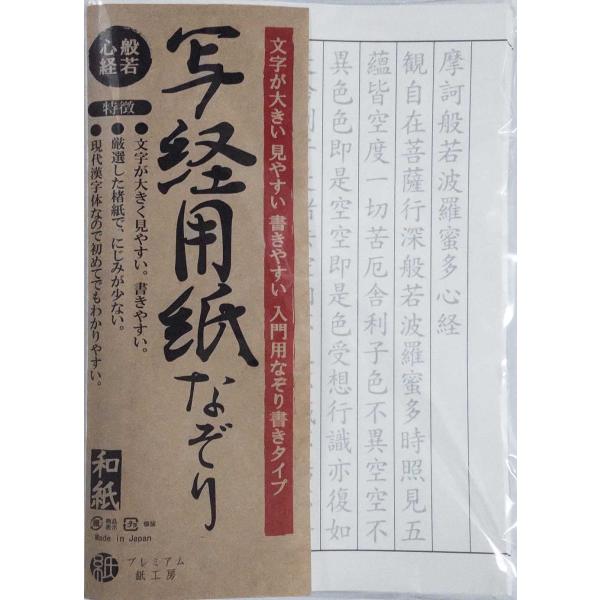 般若
心経
写経用紙なぞり
文字が大きい 見やすい 書きやすい 入門用なぞり書きタイプ
特徴
●文字が大きく見やすい。書きやすい。
●厳選した楮紙で、にじみが少ない。
●現代漢字体なので初めてでもわかりやすい。
和紙
Made in Japan
紙
プレミアム
紙工房
摩訶般若波羅蜜多心経
観自在菩薩行深般若波羅蜜多時照見五
蘊皆空度一切苦厄舎利子色不異空空不
異色色即是空空即是色受想行識亦復如